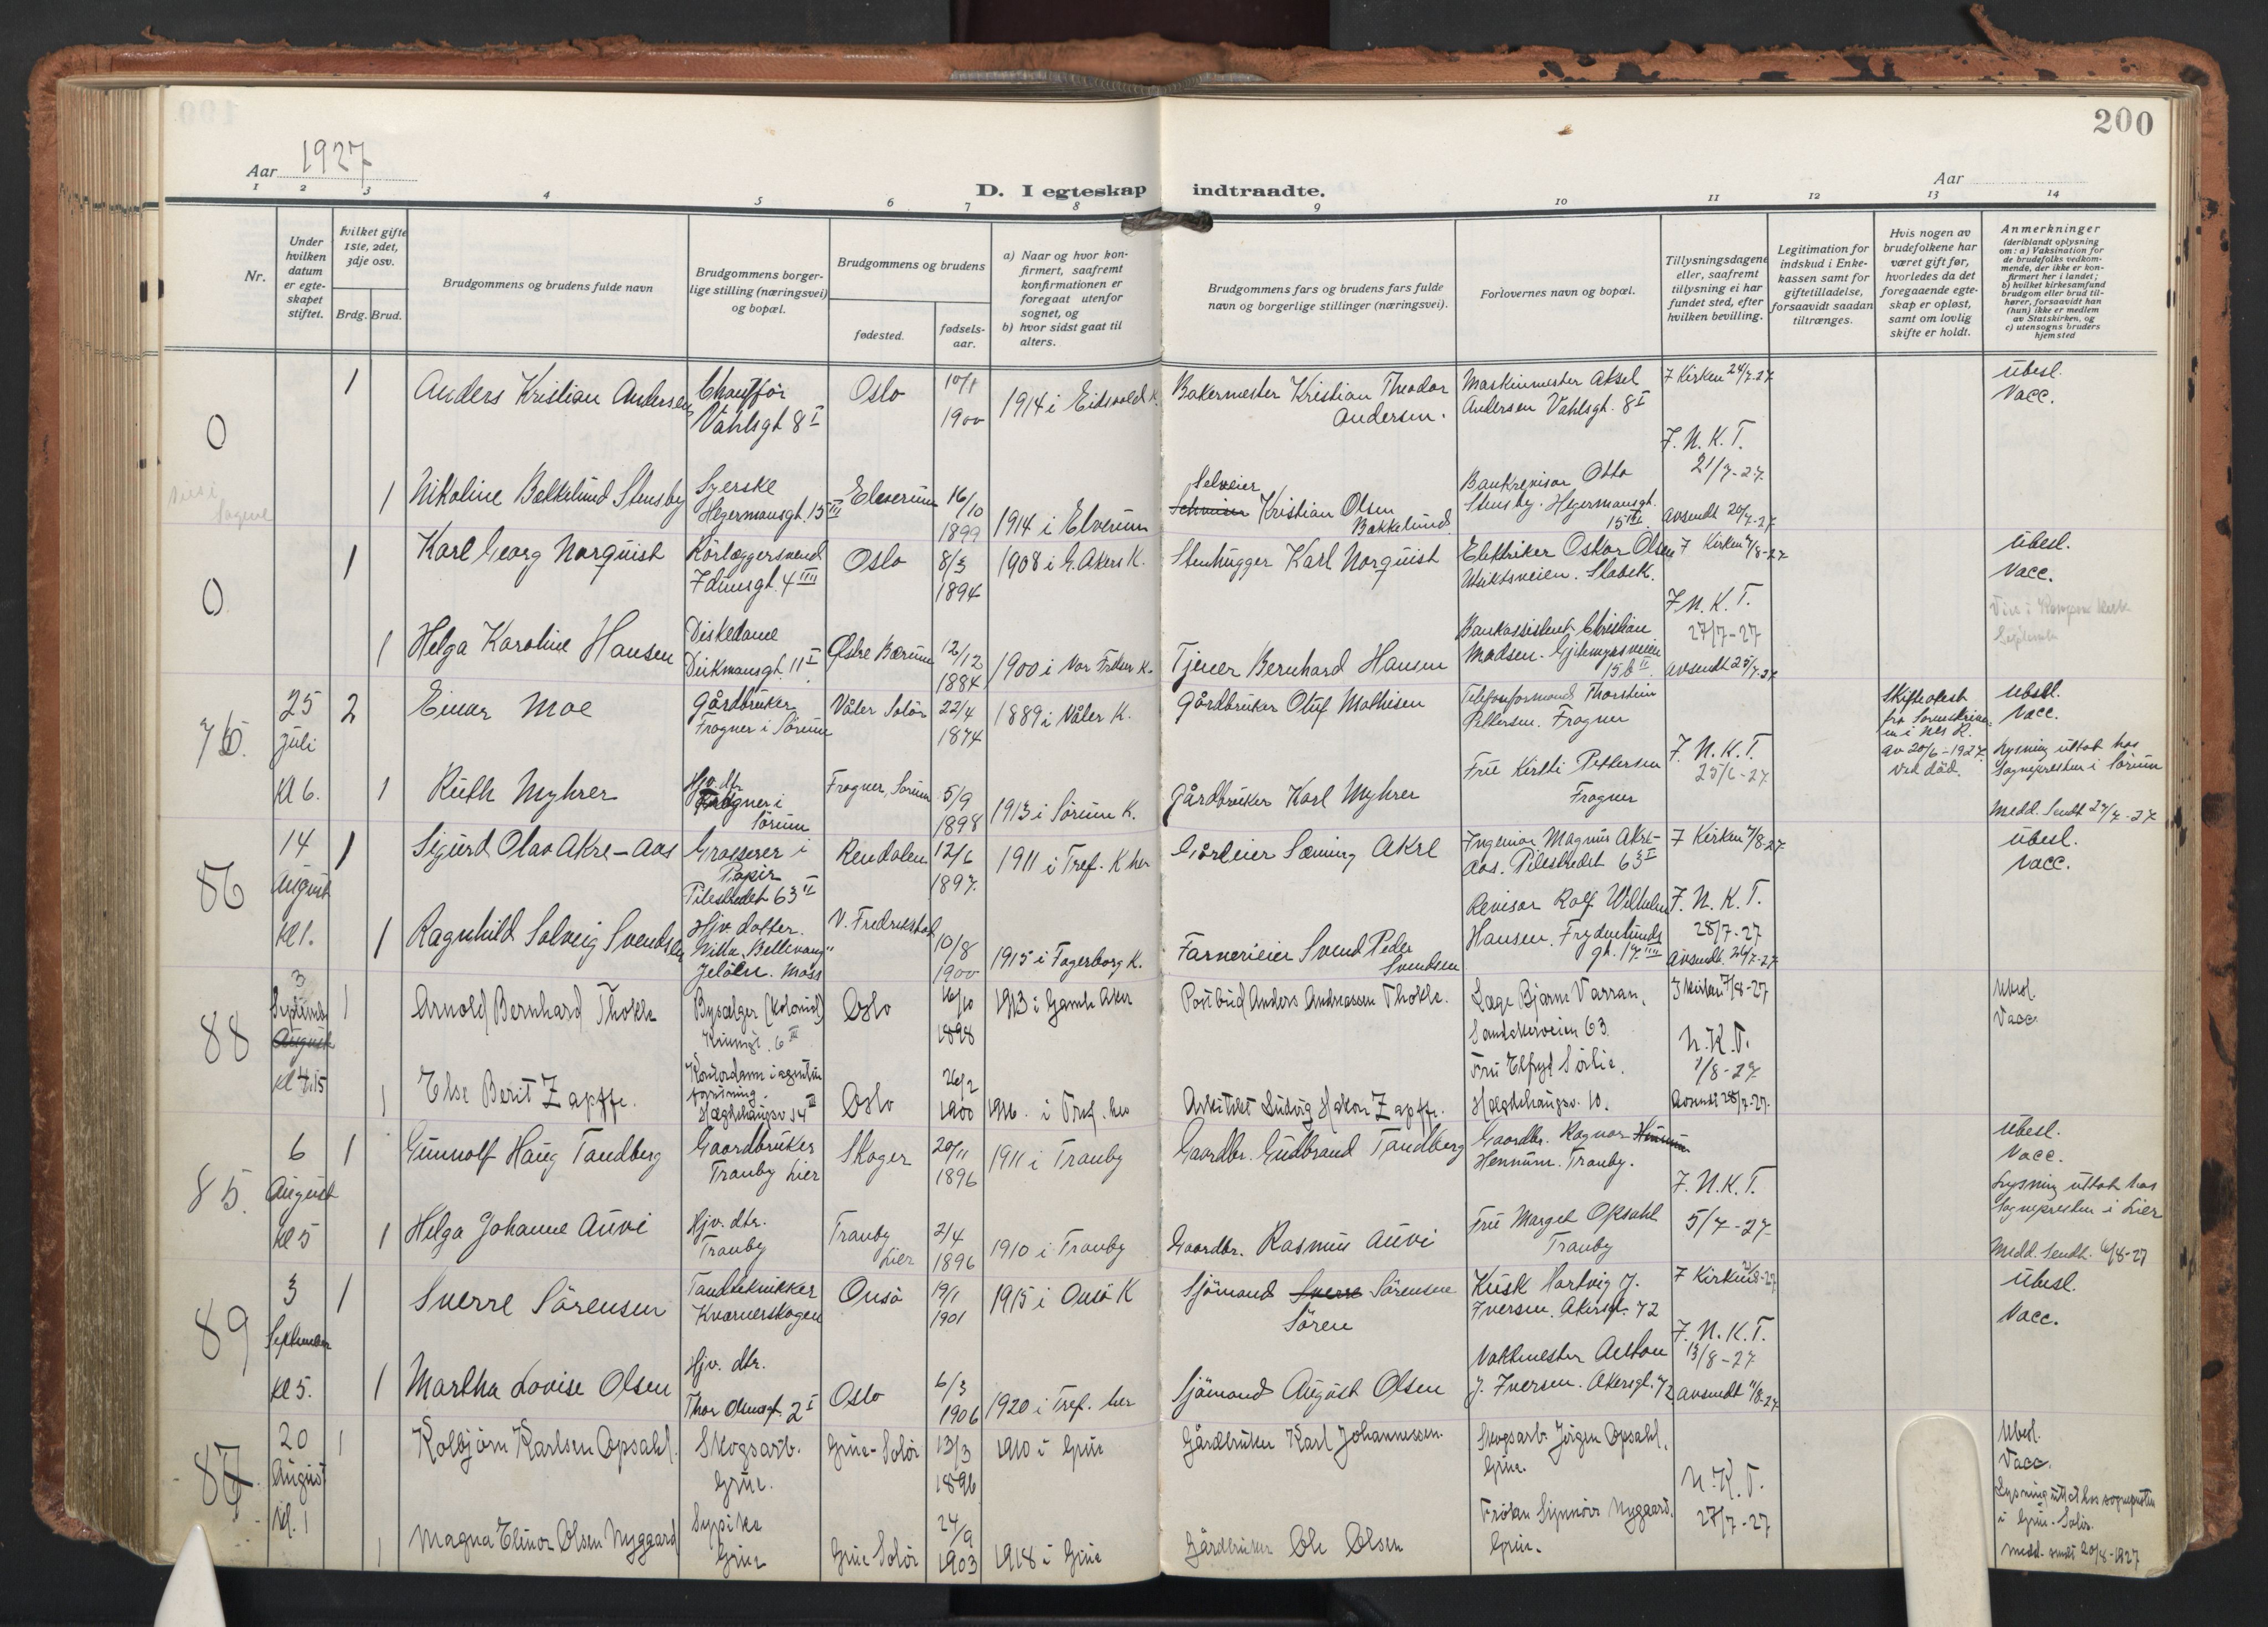 200
Aar 1927
D. I egteskap indtraadte.
Aar
1 2 3 4 5 6 7 8 9 10 11 12 13 14
Nr.
Under hvilken datum er egteskapet stiftet.
Hvilket gifte 1ste, 2det, 3dje osv.
Brdg. Brud.
Brudgommens og brudens fulde navn
Brudgommens borgerlige stilling (næringsvei) og bopæl.
Brudgommens og brudens
fødested.
fødselsaar.
a) Naar og hvor konfirmert, saafremt konfirmationen er foregaat utenfor sognet, og
b) hvor sidst gaat til alters.
Brudgommens fars og brudens fars fulde navn og borgerlige stillinger (næringsvei).
Forlovernes navn og bopæl.
Tillysningsdagene eller, saafremt tillysning ei har fundet sted, efter hvilken bevilling.
Legitimation for indskud i Enkekassen samt for giftetilladelse, forsaavidt saadan tiltrænges.
Hvis nogen av brudefolkene har været gift før, hvorledes da det foregaaende egteskap er opløst, samt om lovlig skifte er holdt.
Anmerkninger
(deriblandt oplysning om: a) Vaksination for de brudefolks vedkommende, der ikke er konfirmert her i landet; b) hvilket kirkesamfund brudgom eller brud tilhører, forsaavidt han (hun) ikke er medlem av Statskirken, og c) utensogns bruders hjemsted
0
1 Anders Kristian Andersen
Chauffør
Vahlsgt 8 I
Oslo
10/1
1900
1914 i Eidsvold K.
Bakermester Kristian Theodor
Andersen.
Maskinmester Aksel
Andersen Vahlsgt. 8 I
I Kirken 24/7-27
F. N. K. T.
21/7-27.
Ubesl.
Vacc.
1 Nikoline Bakkelund Stensby
Syerske
Hegermansgt. 15 III
Elverum
16/10
1899
1914 i Elverum
Selveier
Kristian Olsen
Bakkelund
Bankrevisor Otto
Stensby. Hegermansgt.
15 III
avsendt 20/7-27
0
1 Karl Georg Norquist
Rörlæggersvend
Idunsgt. 4 IIII
Oslo
8/3
1894
1908 i G. Akers K.
Stenhugger Karl Norquist
Elektriker Oskar Olsen
Utsiktsveien. Stabek.
I Kirken 7/8-27
F. N. K. T.
27/7-27
Ubesl.
Vacc.
1 Helga Karoline Hansen
Diskedame
Dirkmansgt. 11 I
Östre Bærum
12/12
1884
1900 i Vor Frelsers K.
Tjener Bernhard Hansen
Bankassistent Christian
Madsen. Gjetemyrsveien
15 b II
avsendt 25/7-27
76.
25
Juli
Kl 6.
2 Einar Moe
Gårdbruker
Frogner i Sörum
Våler Solör
22/4
1874
1889 i Våler K.
Gårdbruker Oluf Mathisen
Telefonformand Thorstein
Pettersen. Frogner
F. N. K. T.
25/6-27
Skifteattest
fra Sorenskrive-
ren i Nes R.
av 20/6-1927.
ved död.
Ubesl.
Vacc.
Lysning uttat hos
Sognepresten i Sörum
Medd. Sendt 27/7-27
1 Ruth Myhrer
Hjv. dtr.
Frogner i
Sörum
Frogner, Sörum
5/9
1898
1913 i Sörum K.
Gårdbruker Karl Myhrer
Frue Kirsti Pettersen
Frogner
86
14
August
Kl 1.
1 Sigurd Olav Akre-Aas
Grosserer i
Papir
Pilestredet 63 II
Rendalen
12/6
1897.
1911 i Tref. K her
Gårdeier Sæming Akre
Ingeniør Magnus Akre-
Aas. Pilestredet 63 I
I Kirken 7/8-27
F. N. K. T.
28/7-27
Ubesl.
Vacc.
1 Ragnhild Solveig Svendsen
Hjv. datter.
Villa "Bellevang"
Jelöen. Moss
V. Fredrikstad
10/8
1900
1915 i Fagerborg K.
Farverieier Svend Peder
Svendsen
Revisor Rolf Wilhelm
Hansen. Frydenlunds
gt. 17 IIII
Avsendt. 26/7-27
88
3
Septemb
August
Kl 4.15
1 Arnold Bernhard Thokle
Bysælger (kolonial)
6 III
Oslo
16/10
1898
1913 i Gamle Aker
Postbud Anders Andreassen Thokle.
Læge Bjarne Varran,
Sandakerveien 63.
I kirken 7/8-27
N. K. T.
1/8-27
Ubesl.
Vacc.
1 Else Berit Zapffe.
Kontordame i agentur
forretning.
Hægdehaugsv. 14 III
Oslo
26/2
1900
1916. i Tref. her
Arkitekt Ludvig Hakon Zapffe.
Fru Elfryd Sörlie,
Hægdehaugsv. 10.
Avsendt 28/7-27.
85.
6
August
Kl 5
1 Gunnolf Haug Tandberg
Gaardbruker
Tranby Lier
Skoger
20/11
1896
1911 i Tranby
Gaardbr. Gudbrand Tandberg
Gaardbr. Ragnar
Hennum. Tranby.
F. N. K. T.
5/7-27
Ubesl.
Vacc.
Lysning uttat hos
Sognepresten i Lier
Medd. Sendt. 6/8-27
1 Helga Johanne Auvi
Hjv. dtr.
Tranby
Tranby
Lier
2/4
1896
1910 i Tranby
Gaardbr. Rasmus Auvi
Frue Marget Opsahl
Tranby
89
3
September
Kl 5.
1 Sverre Sörensen
Tandtekniker
Kværnerskogen
Onsö
19/1
1901
1915 i Onsö K
Sjömand Sverre Sörensen
Sören
Kusk Hartvig J.
Iversen. Akersgt. 72
F. N. K. T.
13/8-27
Ubesl.
Vacc.
1 Martha Lovise Olsen
Hjv. dtr.
Thor Olsensgt. 2 I
Oslo
6/3
1906
1920 i Tref. her
Sjömand August Olsen
Vaktmester Anton
J. Iversen. Akersgt. 72
avsendt 11/8-27
87.
20
August
Kl. 1
1 Kolbjörn Karlsen Opsahl.
Skogsarb.
Grue.
Grue-Solör
13/3
1896
1910 i Grue
Gårdbruker Karl Johannessen.
Skogsarb. Jörgen Opsahl,
Grue.
N. K. T.
27/7-27
Ubesl.
Vacc.
Lysning uttat hos sognepresten
i Grue-Solör.
medd. sendt 20/8-1927
1 Magna Elinor Olsen Nyggaard
Sypike
Grue
Grue-Solör
24/9
1903
1918 i Grue
Gårdbruker Ole Olsen
Fröken Synnöve Nyggaard.
Grue.